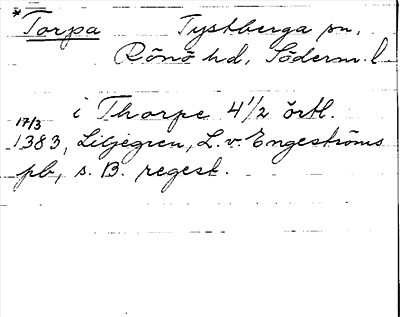 *Torpa Tystberga sn,
Rönö hd, Söderm. l
i Thorpe 4 1/2 örtl.
17/3
1383, Liljegren, L. v. Engeströms
pb, s. B. regest.